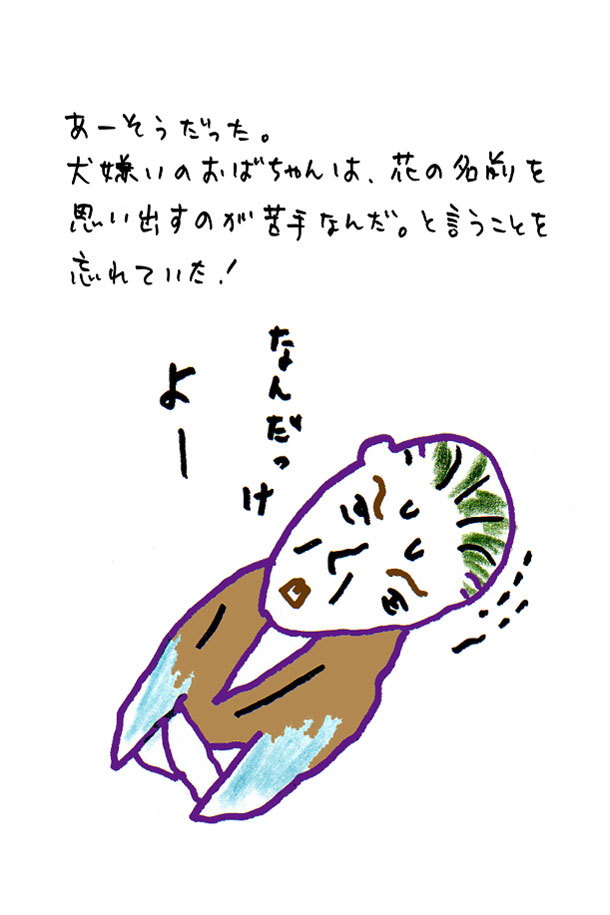 あーそうだった。
犬嫌いのおばちゃんは、花の名前を
思い出すのが苦手なんだ。と言うことを
忘れていた！
なんだっけ
よー